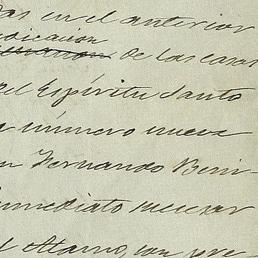 das en el anterior
dicación
de las casas
del Espíritu Santo
número nueve
n Fernando Beni-
inmediato mercar
el Alamo, con pre-